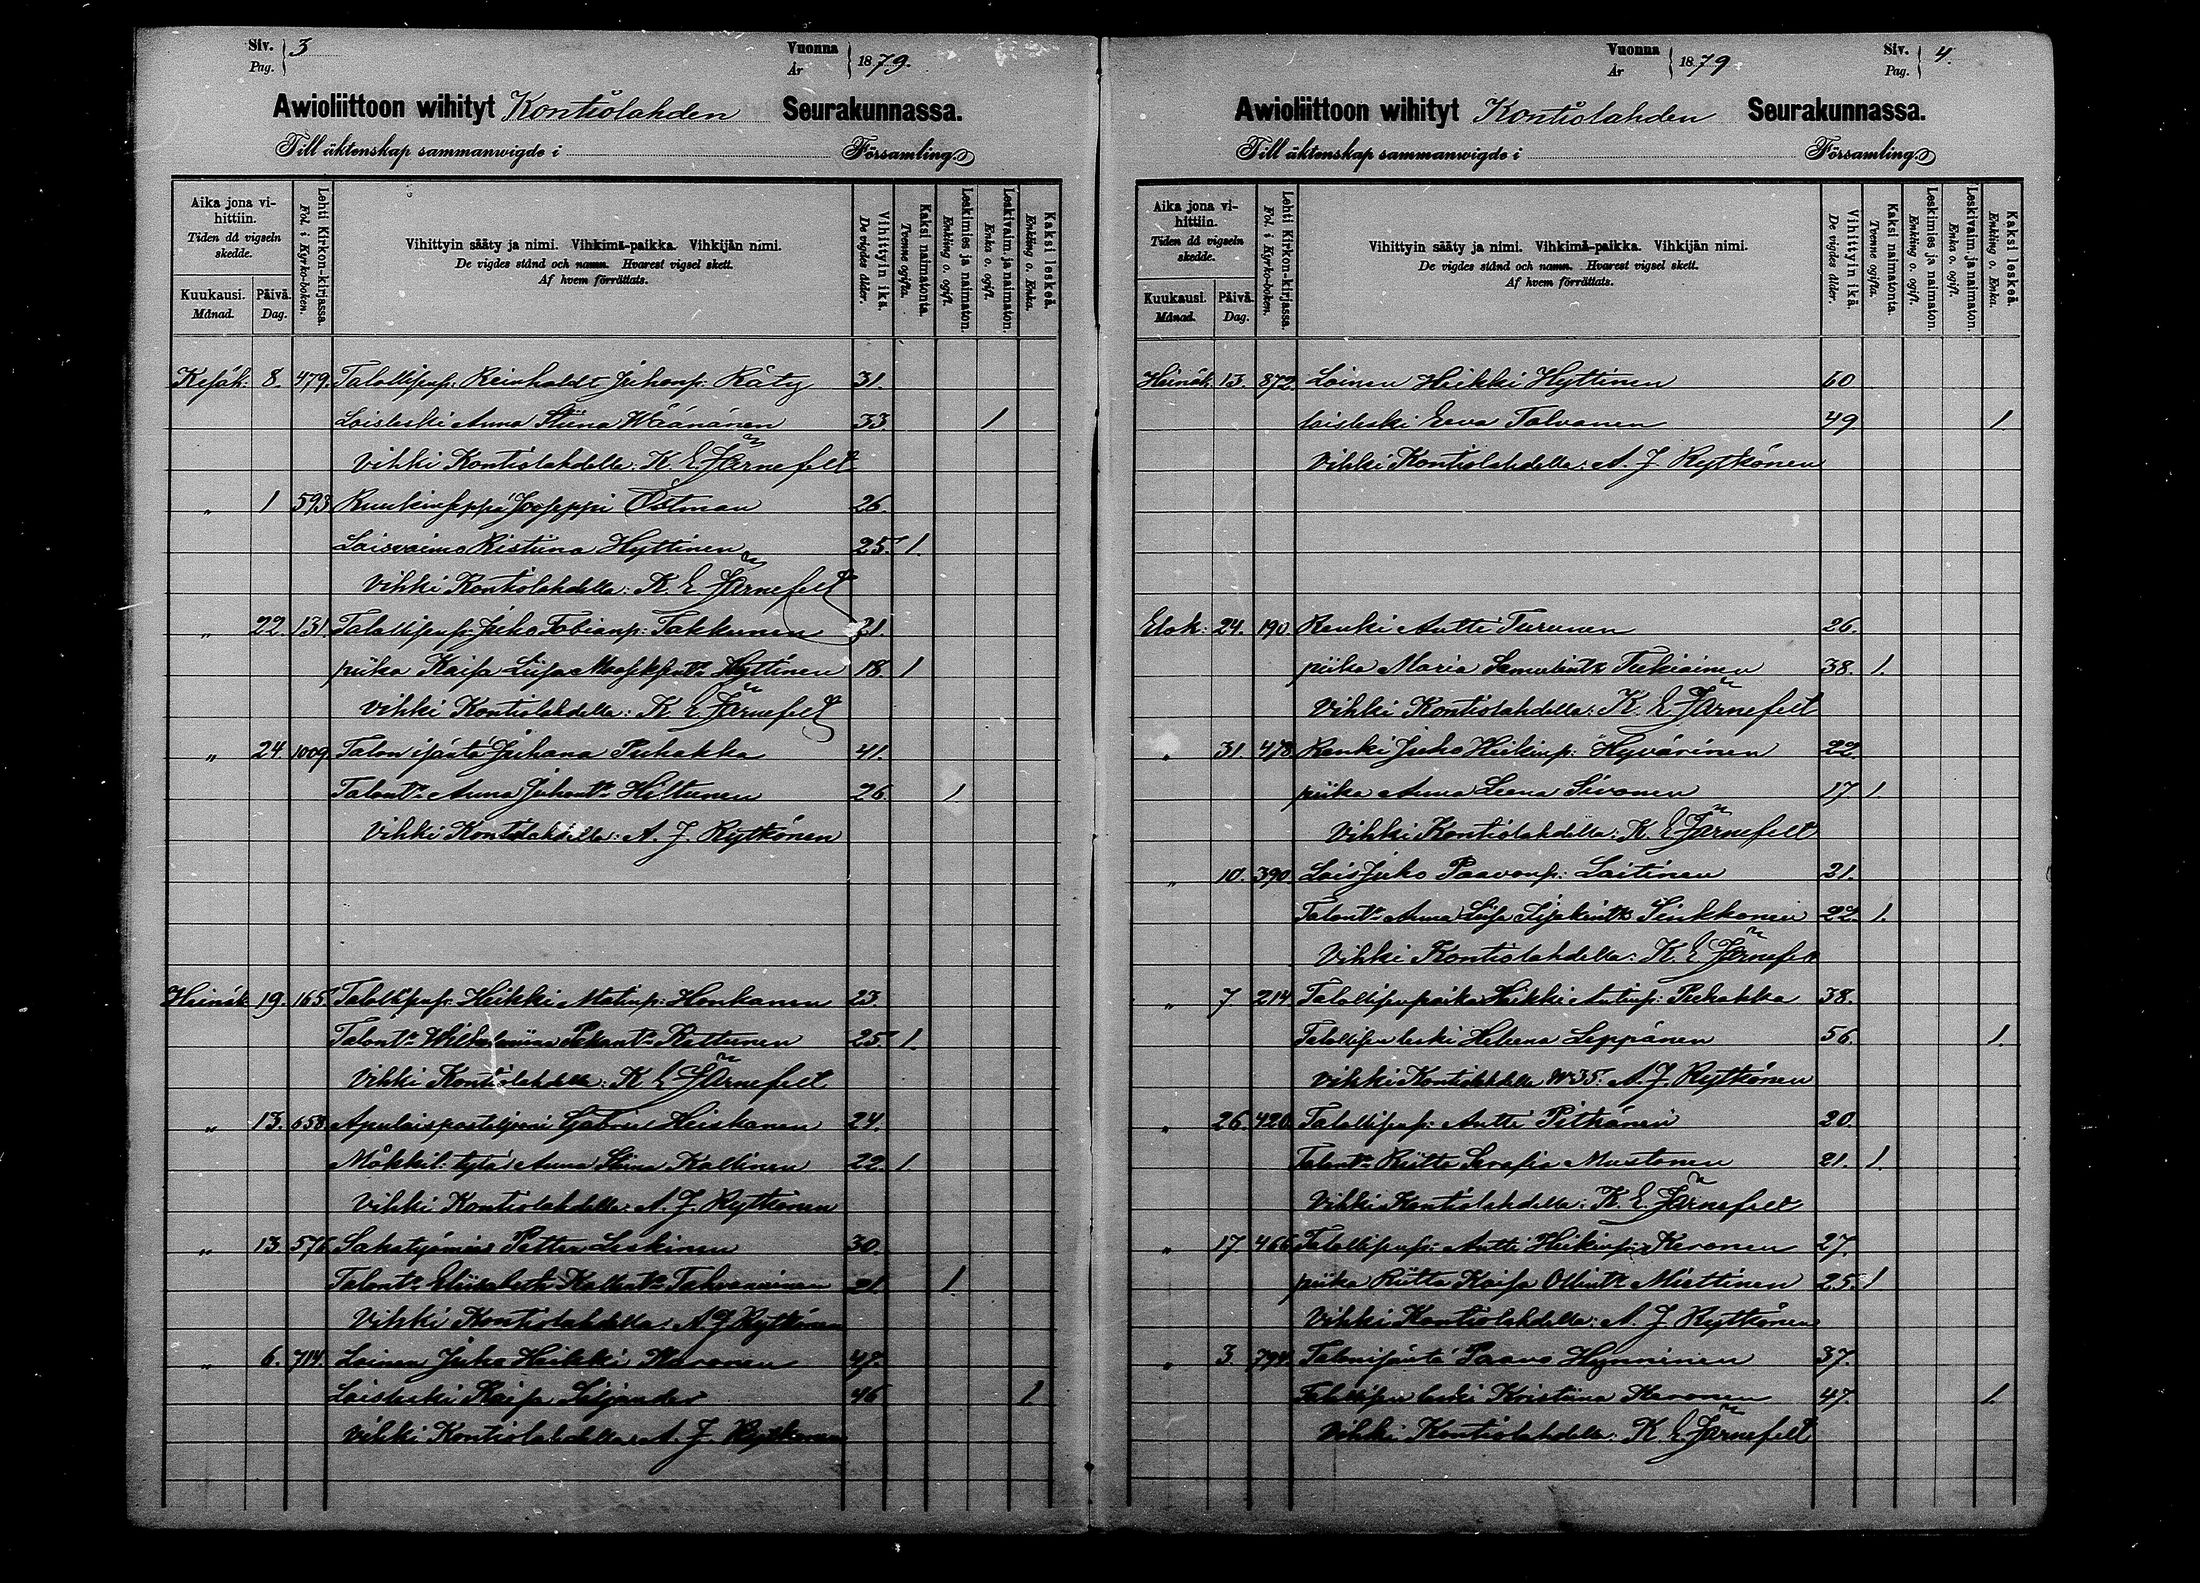 Siv. Pag. 3 Vuonna År 1879.
Awioliittoon wihityt Kontiolahden Seurakunnassa.
Till äktenskap sammanwigde i Församling
Aika jona vihittiin. Tiden då vigseln skedde.
Kuukausi. Månad.
Päivä. Dag.
Lehti Kirkon-kirjassa. Fol. i Kyrko-boken.
Vihittyin sääty ja nimi. Vihkimä-paikka. Vihkijän nimi.
De vigdes stånd och namn. Hvarest vigsel skett.
Af hvem förrättats.
Vihittyin ikä. De vigdes ålder.
Kaksi naimatonta. Tvenne ogifta.
Leskimies ja naimaton. Enkling o. ogift.
Leskivaim. ja naimaton. Enka o. ogift.
Kaksi leskeä. Enkling o. Enka.
Kesäk. 8. 479. Talollisenp: Reinholdt Juhonp: Räty 31.
Loisleski Anna Stiina Wäänänen 33. 1
Vihki Kontiolahdella: K. E. Järnefelt
„ 1 593 Ruukinseppä Jooseppi Östman 26.
Loisvaimo Ristiina Hyttinen 25. 1.
Vihki Kontiolahdella: K. E. Järnefelt
„ 22. 131. Talollisenp: Juho Tobianp: Takkunen 21.
piika Kaisa Liisa Hyttinen 18. 1
Vihki Kontiolahdella: K. E. Järnefelt
„ 24. 1009. Talon isäntä Juhana Puhakka 41.
Talont:r Anna Juhont:r Hiltunen 26. 1.
Vihki Kontiolahdella: A. J. Rytkönen
Heinäk. 19. 165. Talollisenp: Heikki Matinp: Honkanen 23.
Talont:r Wilhelmiina Pekant:r Rattunen 25. 1.
Vihki Kontiolahdella: K. E. Järnefelt
„ 13. 658. Apulaisposteljooni Gabriel Heiskanen 24.
Mökkil: tytär Anna Stiina Kallinen 22. 1.
Vihki Kontiolahdella: A. J. Rytkönen
„ 13. 576. Petter Leskinen 30.
Talont:r Eliisabeth Tahvanainen 21. 1.
Vihki Kontiolahdella: A. J. Rytkönen
„ 6. 714. Loinen Juho Heikki 48.
Loisleski Kaisa Siljander 46 1.
Vihki Kontiolahdella: A. J. Rytkönen
Vuonna År 1879 Siv. Pag. 4.
Awioliittoon wihityt Kontiolahden Seurakunnassa.
Till äktenskap sammanwigde i Församling
Aika jona vihittiin. Tiden då vigseln skedde.
Kuukausi. Månad.
Päivä. Dag.
Lehti Kirkon-kirjassa. Fol. i Kyrko-boken.
Vihittyin sääty ja nimi. Vihkimä-paikka. Vihkijän nimi.
De vigdes stånd och namn. Hvarest vigsel skett.
Af hvem förrättats.
Vihittyin ikä. De vigdes ålder.
Kaksi naimatonta. Tvenne ogifta.
Leskimies ja naimaton. Enkling o. ogift.
Leskivaim. ja naimaton. Enka o. ogift.
Kaksi leskeä. Enkling o. Enka.
Heinäk. 13. 872. Loinen Heikki Hyttinen 60
loisleski Eeva Talvanen 49. 1.
Vihki Kontiolahdella: A. J. Rytkönen
Elok: 24. 190. Renki Antti Turunen 26.
piika Maria 38. 1.
Vihki Kontiolahdella: K. E. Järnefelt
„ 31. 478. Renki Juho Heikinp: Hyvärinen 22.
piika Anna Leena Sivonen 17. 1.
Vihki Kontiolahdella: K. E. Järnefelt
„ 10. 390. Lois Juho Paavonp: Laitinen 21.
Talont:r Anna Liisa Sinkkonen 22. 1.
Vihki Kontiolahdella: K. E. Järnefelt
„ 7 214. Talollisenpoika Heikki Antinp: Puhakka 38.
Talollisen leski Helena Leppänen 56. 1.
Vihki Kontiolahdella № 35. A. J. Rytkönen
„ 26. 420. Talollisenp: Antti Pitkänen 20.
Talont:r Riitta Serafia Mustonen 21. 1.
Vihki Kontiolahdella: K. E. Järnefelt
„ 17. 466. Talollisenp: Antti Heikinp: Keronen 27.
piika Riitta Kaisa Ollint:r Miettinen 25. 1
Vihki Kontiolahdella: A. J. Rytkönen
„ 3. 794. Talonisäntä Paavo Hynninen 37.
Talollisen leski Kristiina Keronen 47. 1.
Vihki Kontiolahdella K. E. Järnefelt